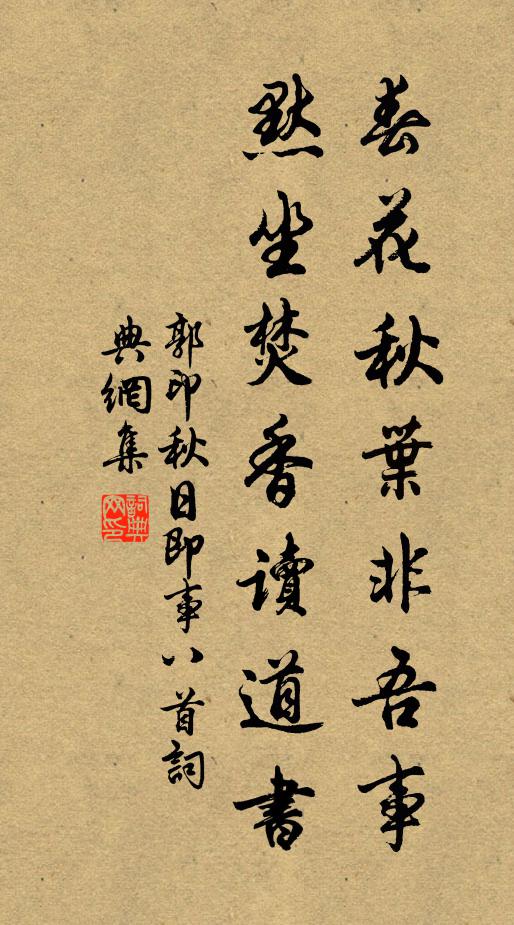 春花秋葉非吾事
默坐焚香讀道書
郭印秋日即事八首詞
典網集
詞典
网印